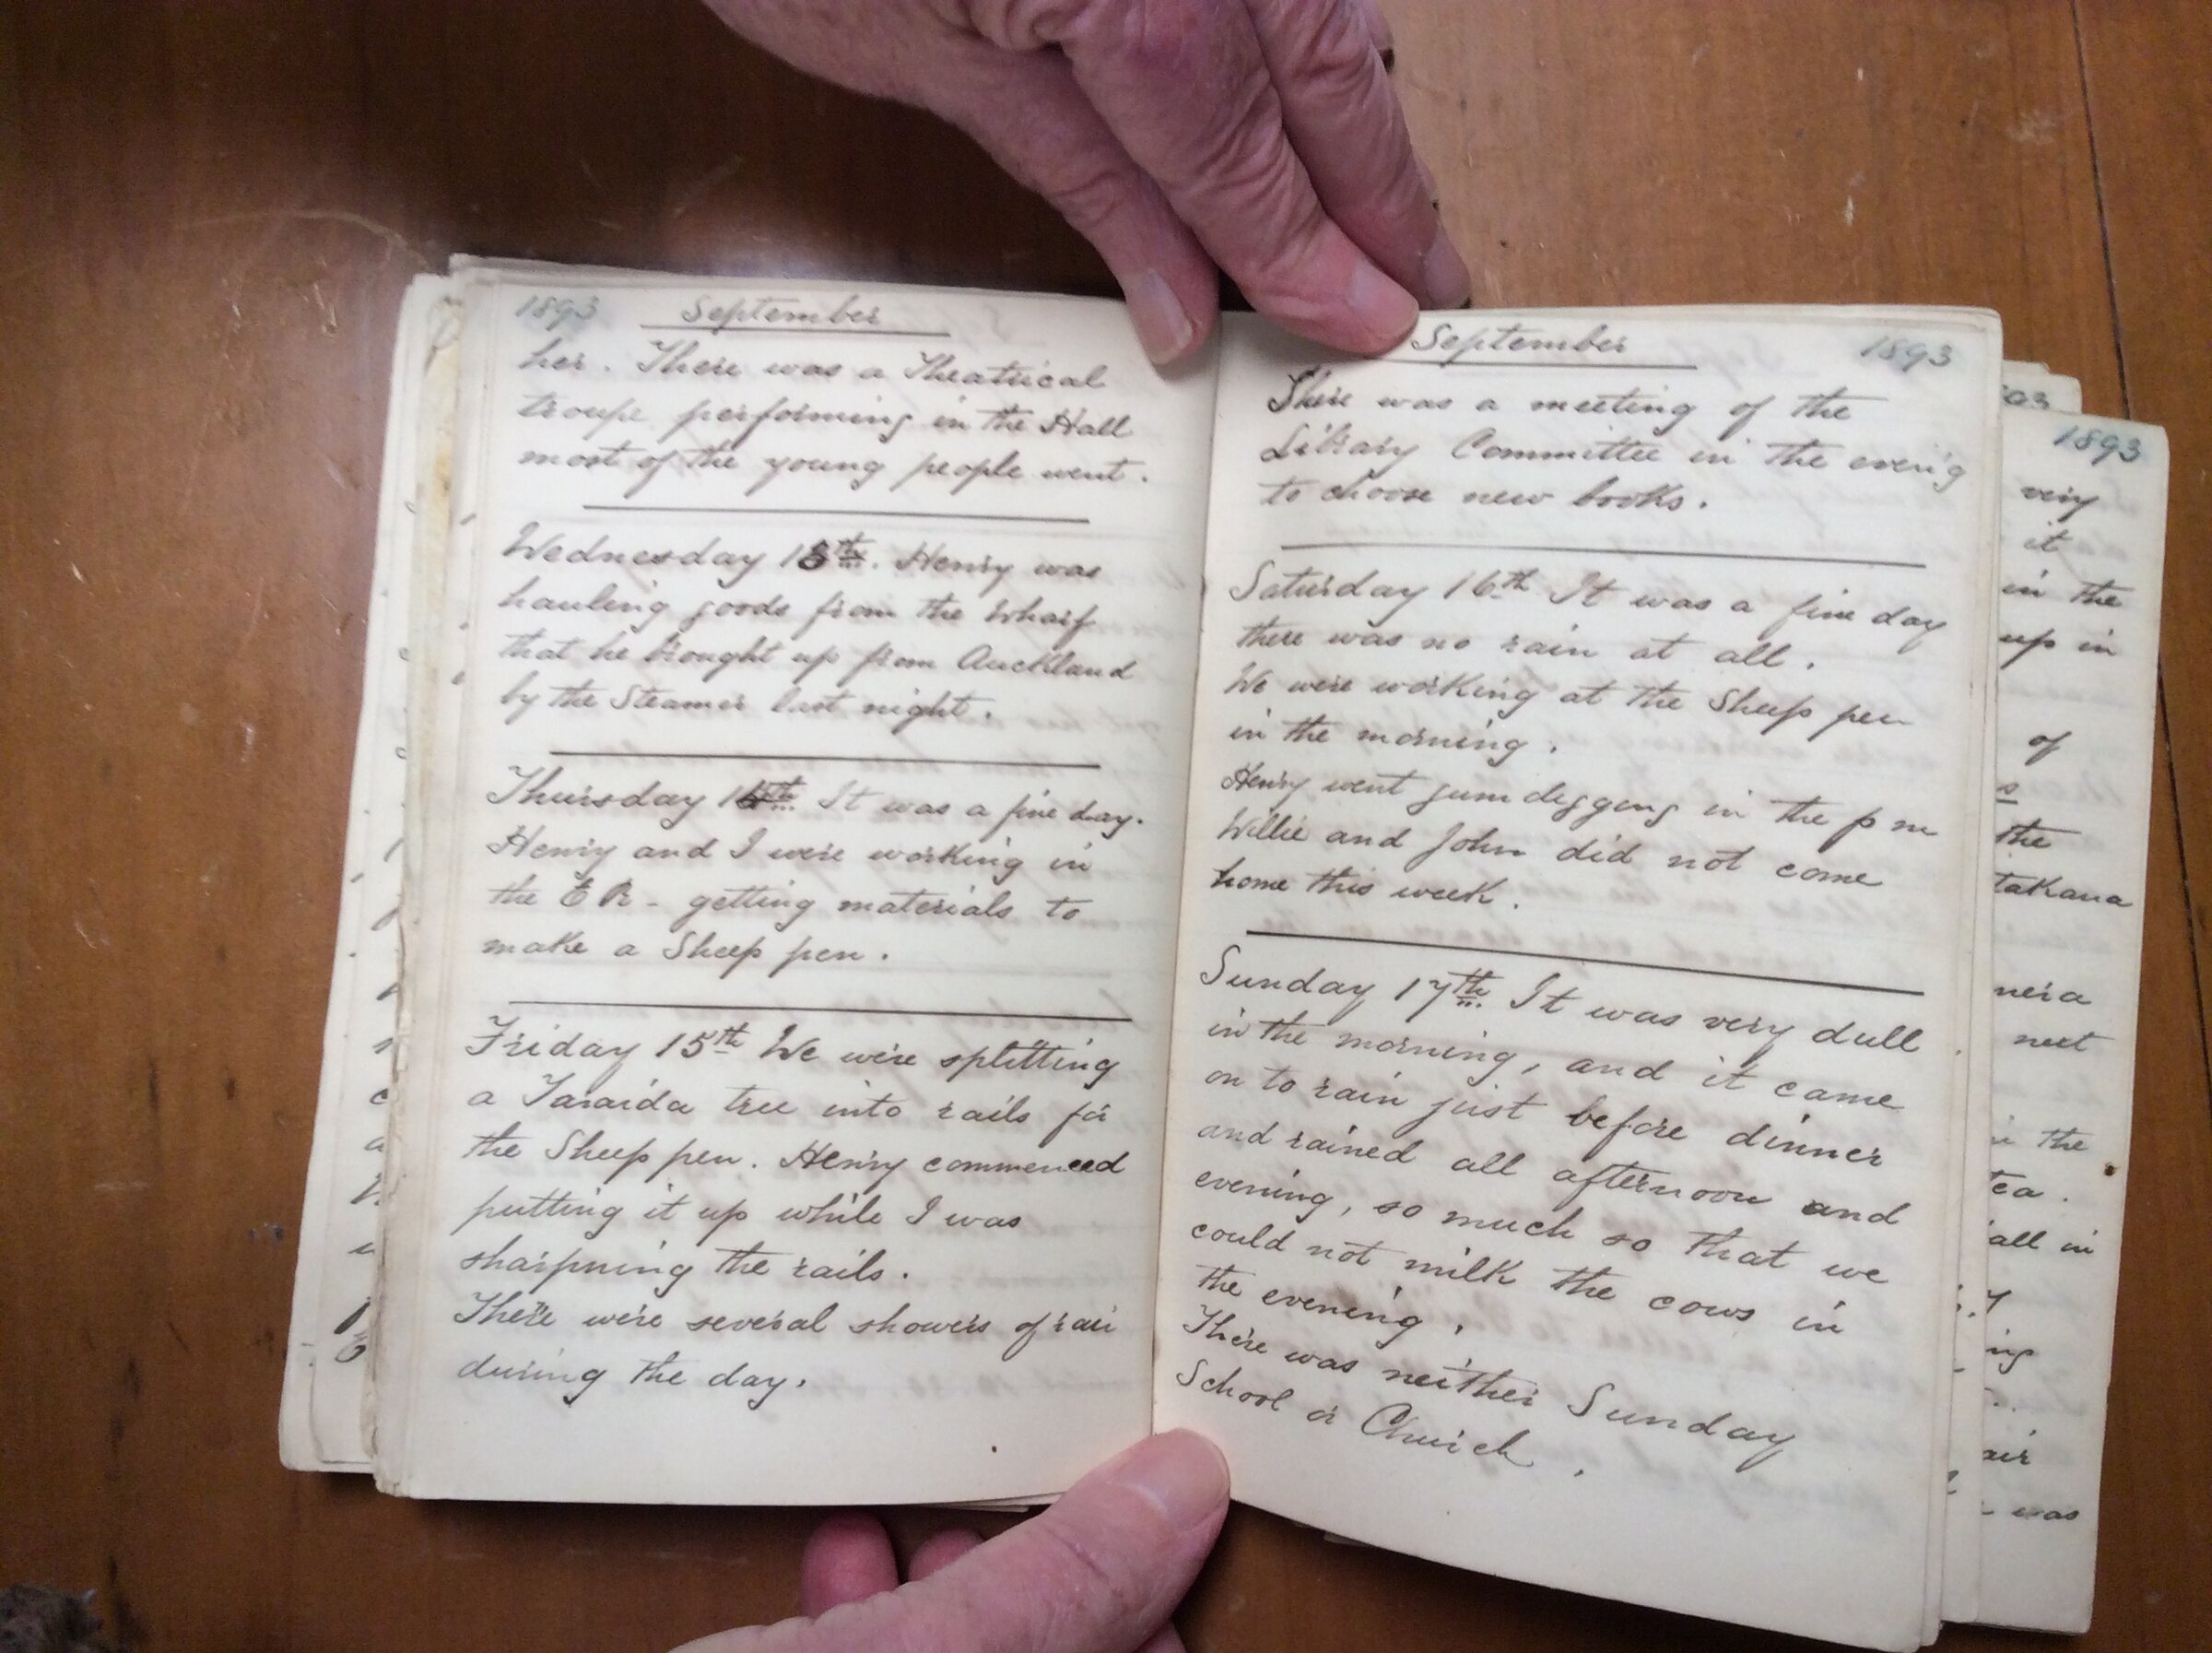 1893 September
her. There was a Theatrical
troupe performing in the Hall
most of the young people went.
Wednesday 13th. Henry was
hauling goods from the wharf
that he brought up from Auckland
by the Steamer last night.
Thursday 14th. It was a fine day.
Henry and I were working in
the E R - getting materials to
make a Sheep pen.
Friday 15th We were splitting
a Taraida tree into rails for
the Sheep pen. Henry commenced
putting it up while I was
sharpning the rails.
There were several showers of rain
during the day.
September 1893
There was a meeting of the
Library Committee in the even'g
to choose new books.
Saturday 16th It was a fine day
there was no rain at all.
We were working at the Sheep pen
in the morning.
Henry went gum digging in the p m
Willie and John did not come
home this week.
Sunday 17th. It was very dull
in the morning, and it came
on to rain just before dinner
and rained all afternoon and
evening, so much so that we
could not milk the cows in
the evening.
There was neither Sunday
School or Church.
1893
very
it
in the
up in
of
the
takana
next
the
tea.
all in
was